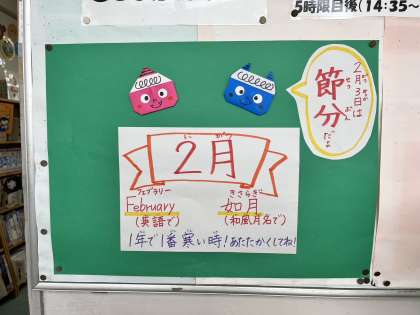 5時限目後(14:35～
2月3日は
がつ
節分
せつ ぶん
だよ
にがつ
2月
フェブラリー
February
(英語で)
きさらぎ
如月
(和風月名で)
1年で1番寒い時!あたたかくしてね!